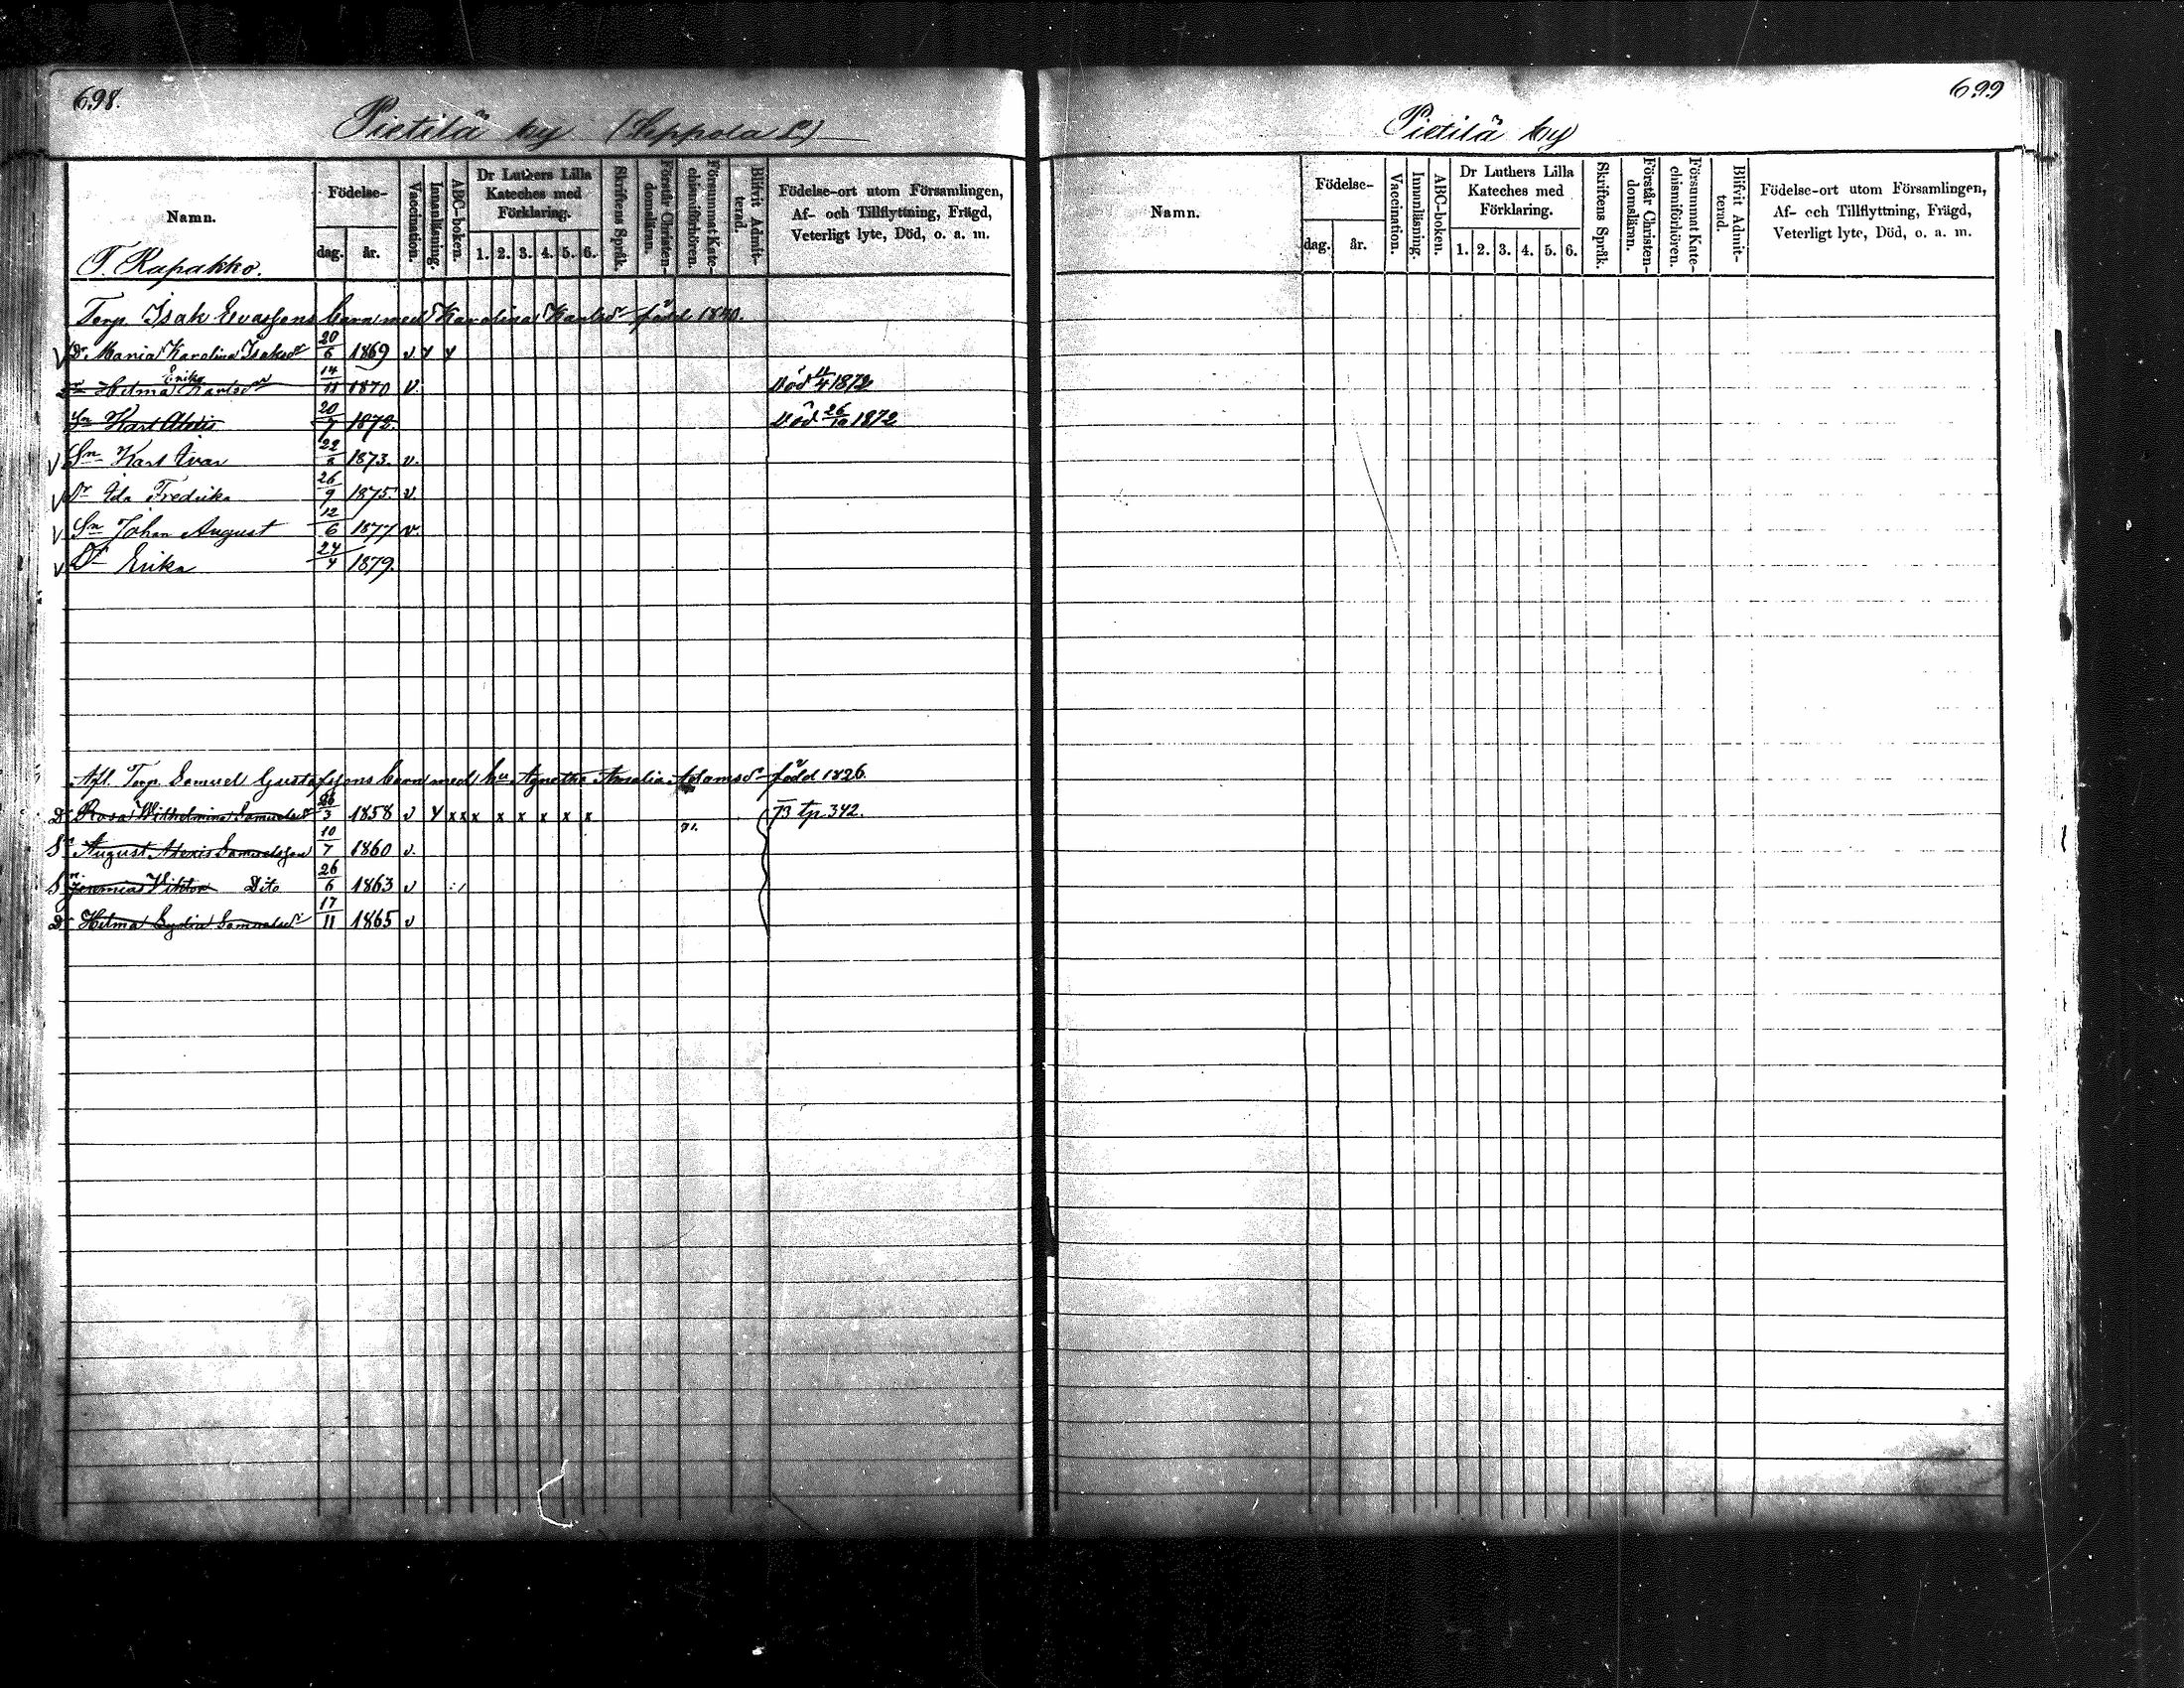 698.
Pietilä by (Seppola P)
Namn.
Födelse-
dag.
år.
Vaccination.
Innanläsning.
ABC-boken.
Dr Luthers Lilla
Kateches med
Förklaring.
1. 2. 3. 4. 5. 6.
Skriftens Språk.
Förstår Christen-
domsläran.
Försummat Kate-
chismiförhören.
Blifvit Admit-
terad.
Födelse-ort utom Församlingen,
Af- och Tillflyttning, Frägd,
Veterligt lyte, Död, o. a. m.
T. Rapakko.
Torp. Isak Evassons barn med Karolina Karlsdr född 1840.
V Dr Maria Karolina Isaksdr 20/6 1869 v y y
Erika
Dr Hilma Karlsdr 14/11 1870 v. Död 11/4 1872
Sn Karl Alexis 20/7 1872. Död 26/10 1872
V Sn Karl Ivar 22/8 1873. v.
V Dr Ida Fredrika 26/9 1875 v.
V Sn Johan August 12/6 1877 v.
V Dr Erika 24/4 1879.
Afl. Torp. Samuel Gustafssons barn med hu Agnetha Amalia Adamsdr född 1826.
Dr Rosa Wilhelmina Samuelsdr 26/3 1858 v y x x x x x x x x 71. 73 tp. 342.
Sn August Alexis Samuelsson 10/7 1860 v.
Sn Jeremias Viktor Dito 26/6 1863 v
Dr Hilma Lydia Samuelsdr 17/11 1865 v
699
Pietilä by
Namn.
Födelse-
dag.
år.
Vaccination.
Innanläsning.
ABC-boken.
Dr Luthers Lilla
Kateches med
Förklaring.
1. 2. 3. 4. 5. 6.
Skriftens Språk.
Förstår Christen-
domslärann.
Försummat Kate-
chismiförhören.
Blifvit Admit-
terad.
Födelse-ort utom Församlingen,
Af- och Tillflyttning, Frägd,
Veterligt lyte, Död, o. a. m.